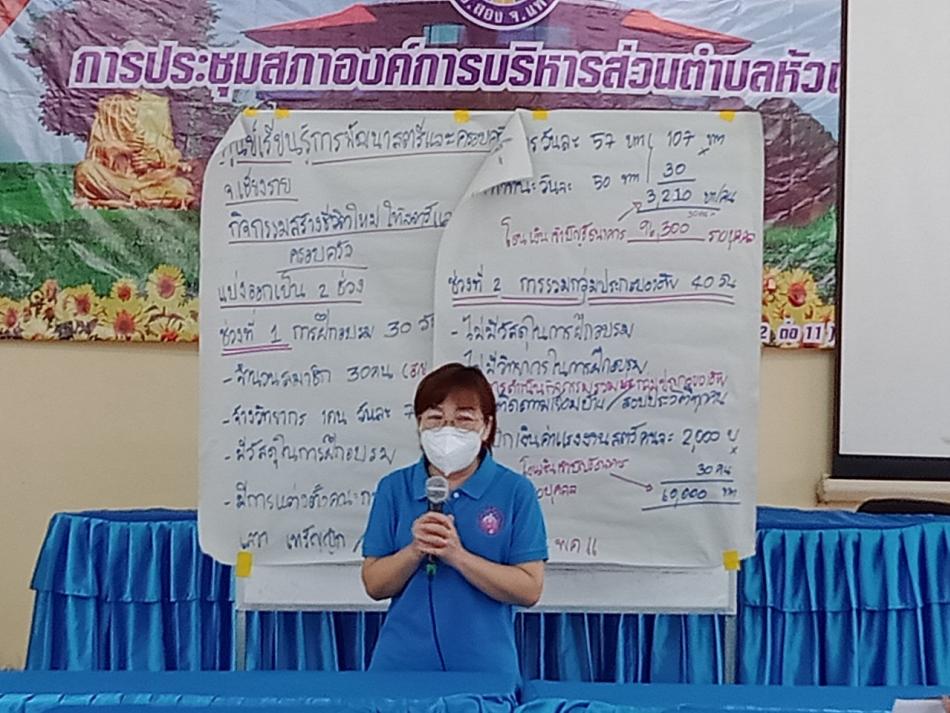 อ.สอง จ.แพร่
การประชุมสภาองค์การบริหารส่วนตำบลหัว
ศูนย์เรียนรู้การพัฒนาสตรีและครอบครัว
จ.เชียงราย
กิจกรรมสร้างชีวิตใหม่ ให้สตรีและ
ครอบครัว
แบ่งออกเป็น 2 ช่วง
ช่วงที่ 1 การฝึกอบรม 30 วัน
- จำนวนสมาชิก 30 คน
- จ้างวิทยากร 1 คน วันละ 7
- มีวัสดุในการฝึกอบรม
- มีการแต่งตั้งคณะก
เลขา เหรัญญิก /
วันละ 57 บาท 107 บาท
x
วันละ 50 บาท 30
3,210 บาท/คน
30 คน
โอนเงินเข้าบัญชีธนาคาร 96,300
ช่วงที่ 2 การรวมกลุ่มประกอบอาชีพ 40 วัน
- ไม่มีวัสดุในการฝึกอบรม
- ไม่มีวิทยากรในการฝึกอบรม
การดำเนินกิจกรรมรวมกลุ่มประกอบอาชีพ
ติดตามเยี่ยมบ้าน / สอบประวัติ
เงินค่าแรงงานสตรีคนละ 2,000 บ
x
โอนเงินเข้าบัญชีธนาคาร 30 คน
บุคคล 60,000 บาท
2 ต่อ 11